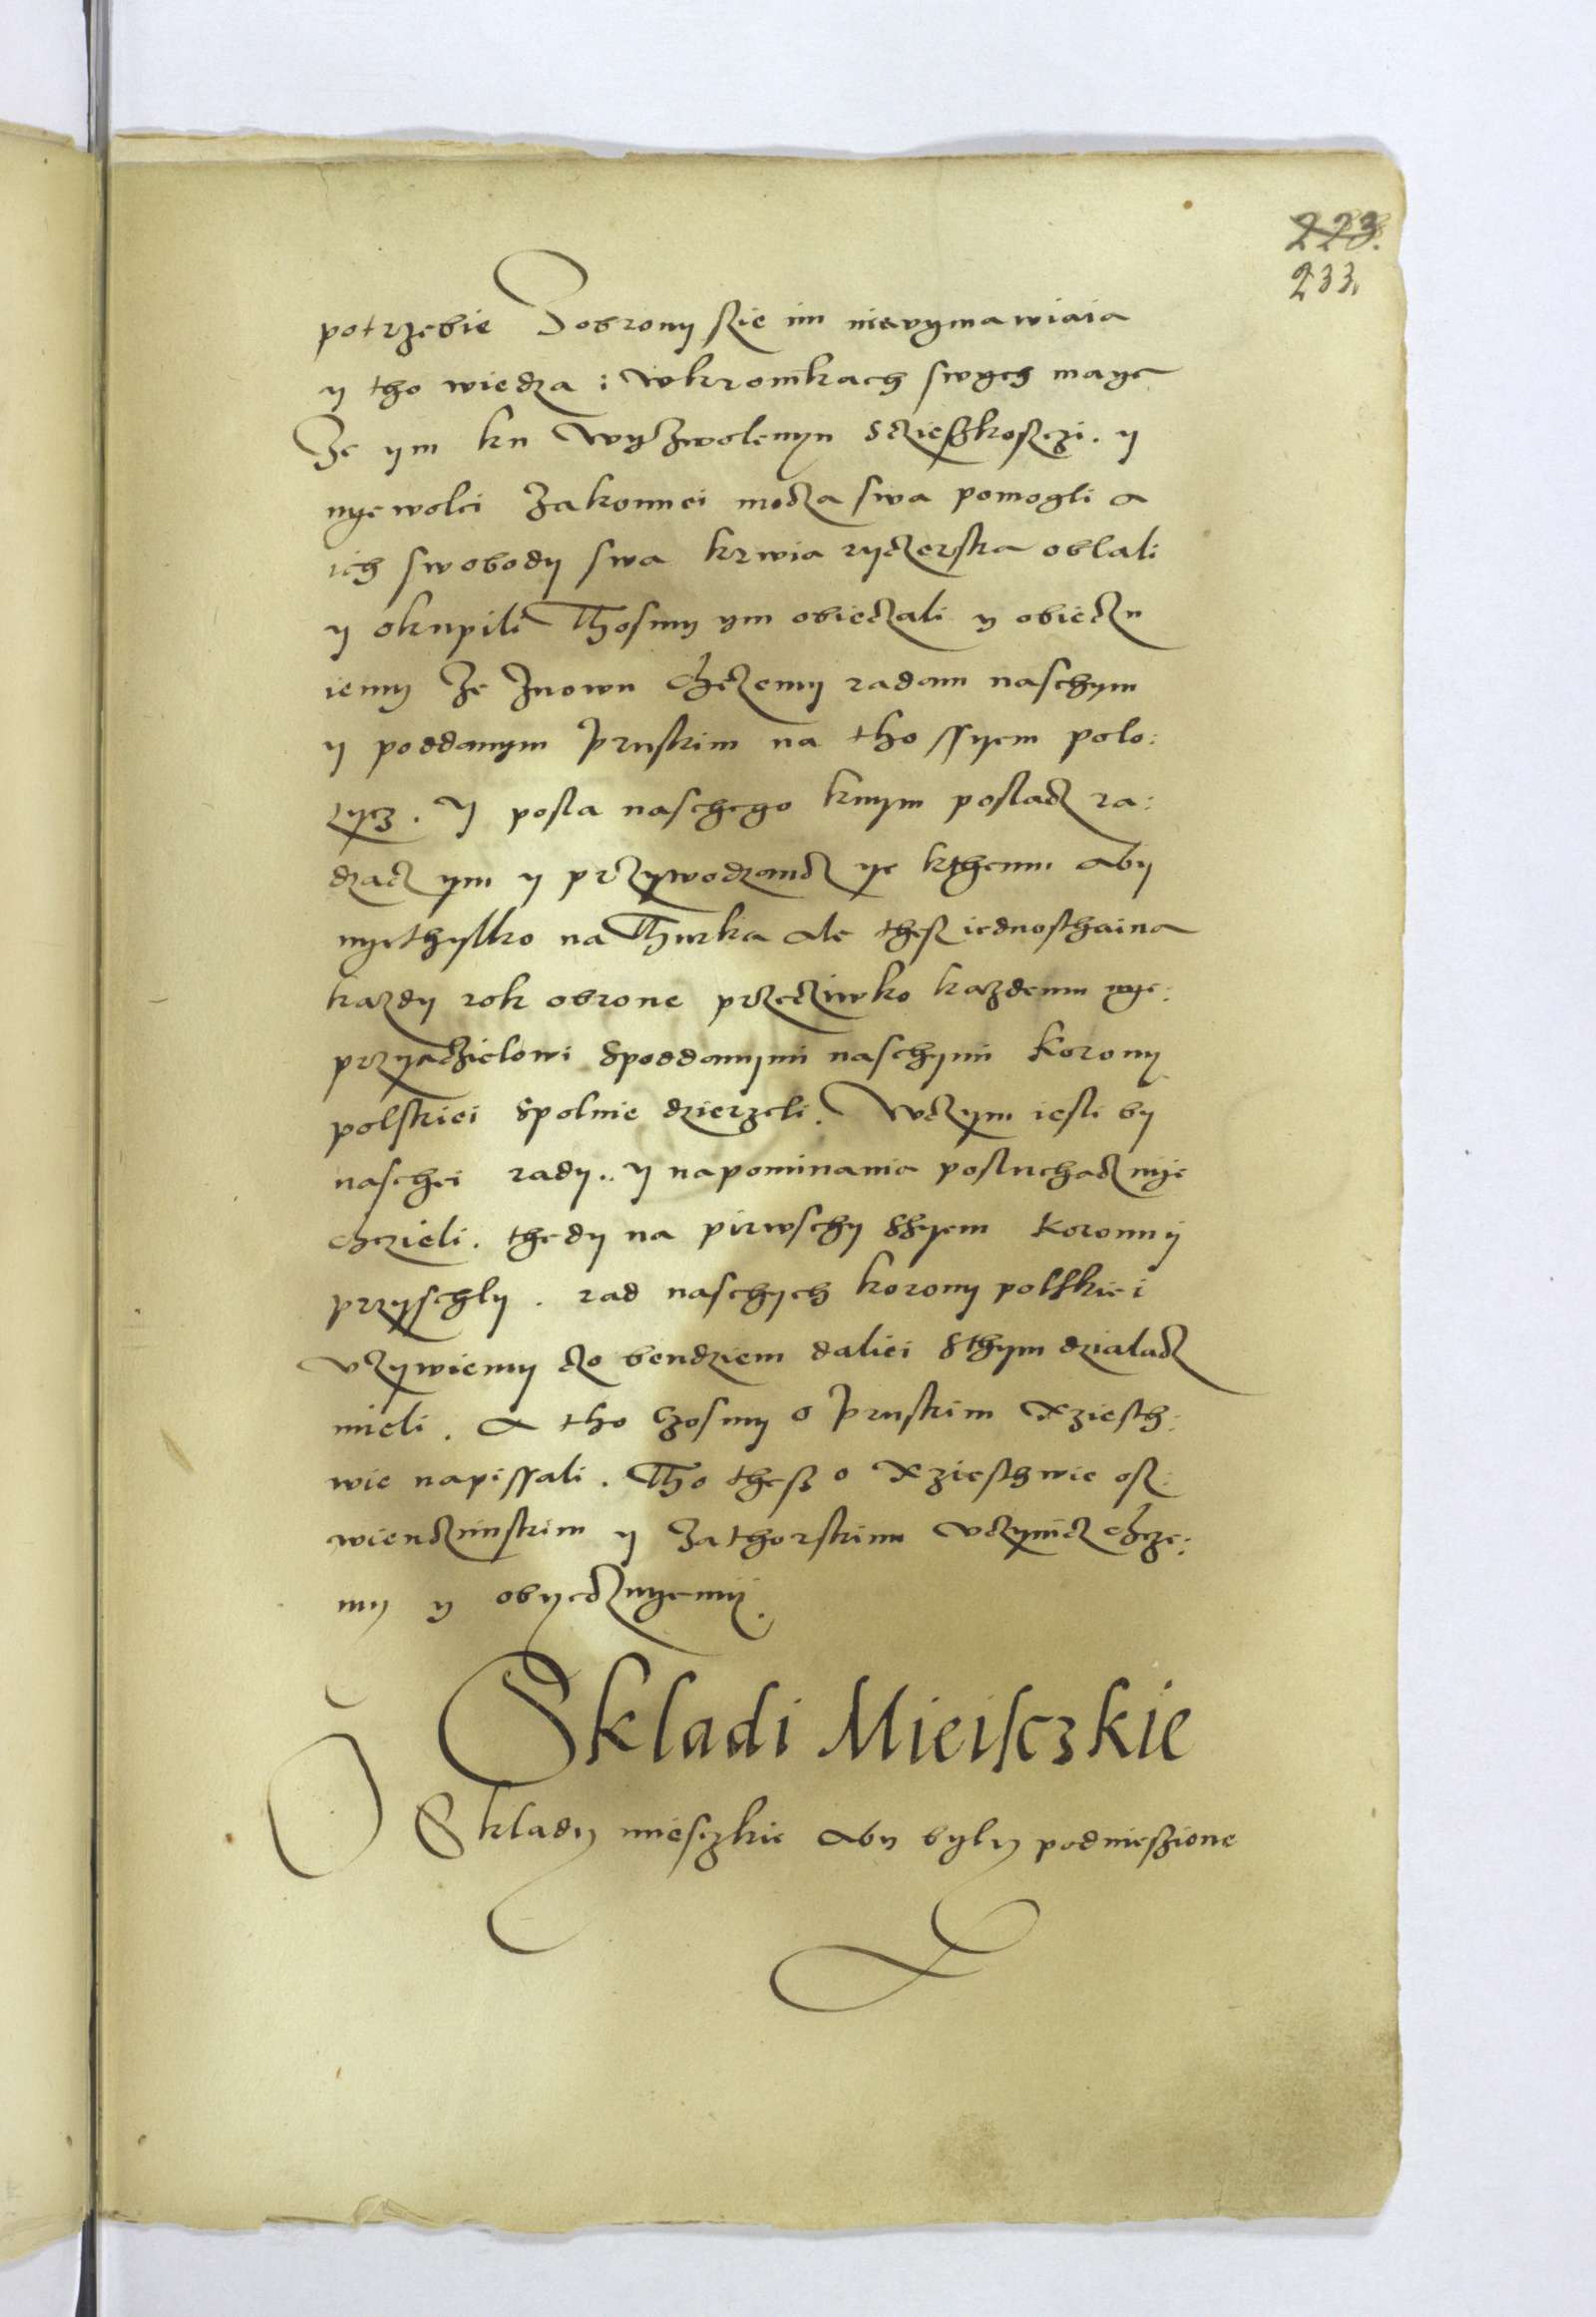 223.
233.
potrzebie Sobrony szie im niewymawiaia
y tho wiedza i wkronikach swych maye
Ze ym ku wyzwolenyu sczieszkosczi. y
nyewolei zakonnei mocza swa pomogli a
ich swobody swa krwia ryczerska oblali
y okupili Thosmy ym obieczali y obieczu
iemy ze znowu chczemy radam naschym
y poddanym pruskim na tho ssyem polo:
zycz. Y posla naschego knym poslacz ra:
dzacz ym y przywodzancz ye kthemu aby
nyethylko na Thurka ale thesz iednosthaina
kazdy rok obrone przecziwko kazdemu nye:
przyaczielowi spoddanymi naschymi korony
polskiei spolnie dzierzeli. Wczym iesli by
naschei rady. y napominania posluchacz nye
chczieli. thedy na pirwschy ssyem koronny
przyschly. rad naschych korony polskiei
vzywiemy czo bendziem daliei sthym dzialacz
mieli. A tho czosmy o pruskim xziesth:
wie napissali. Tho thesz o xziesthwie osz:
wienczimskim y zathorskim vczynicz chcze:
my y obyeczuyemy.
Skladi Mieisczkie
Sklady miesczkie aby byly podnieszione